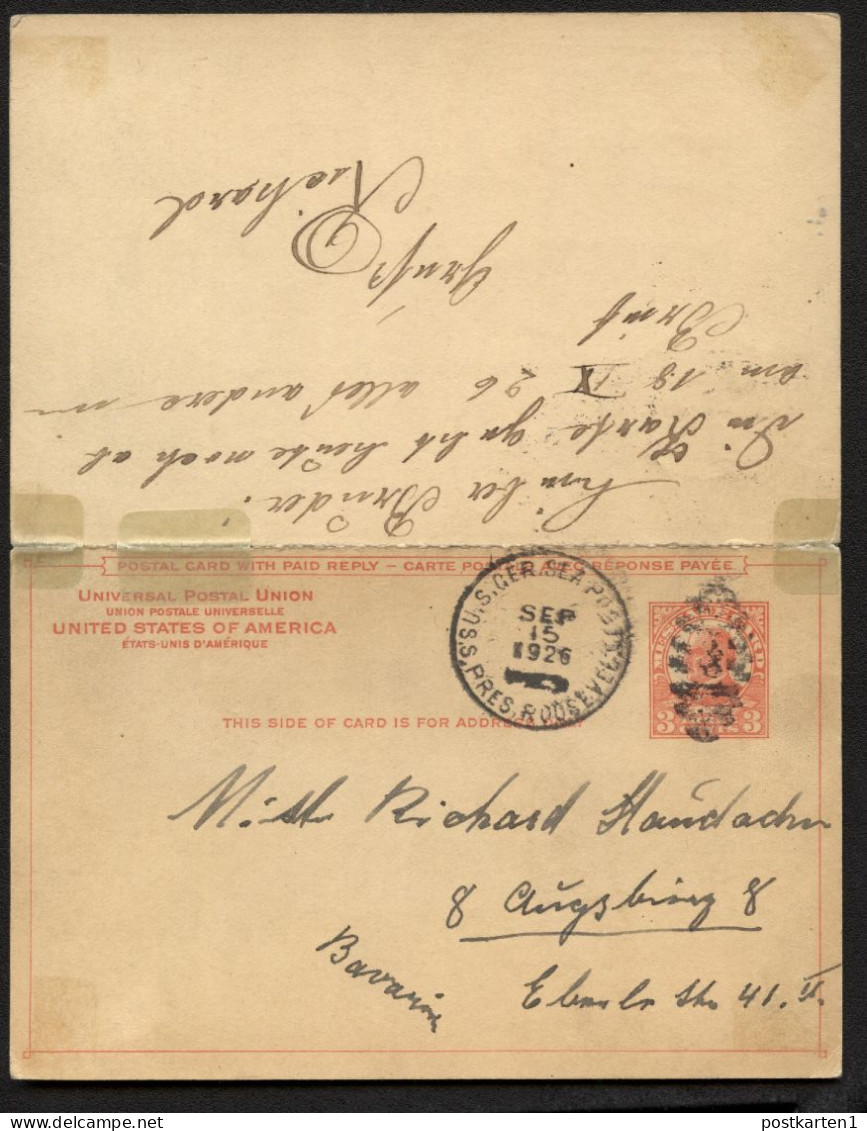 Lieber Bruder!
Die Karte geht heute noch ab
am 18 IX 26 alles andere im
Brief
Gruß
Richard
POSTAL CARD WITH PAID REPLY — CARTE POSTALE AVEC RÉPONSE PAYÉE.
UNIVERSAL POSTAL UNION
UNION POSTALE UNIVERSELLE
UNITED STATES OF AMERICA
ÉTATS-UNIS D'AMÉRIQUE
U.S. GER. SEA POST
S.S. PRES. ROOSEVELT
SEP
15
1926
3 3
THIS SIDE OF CARD IS FOR ADDRESS
Mistr Richard
8 Augsburg 8
Bavaria
Eberle Str 41. II.
postkarten1